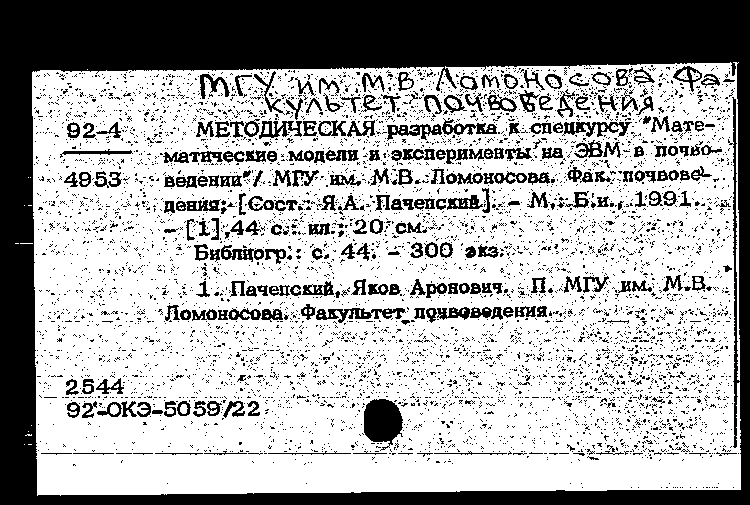 МГУ им. М.В. Ломоносова. Фа-
культет почвоведения.
92-4 МЕТОДИЧЕСКАЯ разработка к спецкурсу "Мате-
матические модели и эксперименты на ЭВМ в почво-
4953 ведении" / МГУ им. М.В. Ломоносова. Фак. почвове-
дения; [Сост. Я.А. Пачепский]. - М.: Б.и., 1991.
- [1],44 с.: ил.; 20 см.
Библиогр.: с. 44. - 300 экз.
1. Пачепский, Яков Аронович. П. МГУ им. М.В.
Ломоносова. Факультет почвоведения.
2544
92-ОКЭ-5059/22